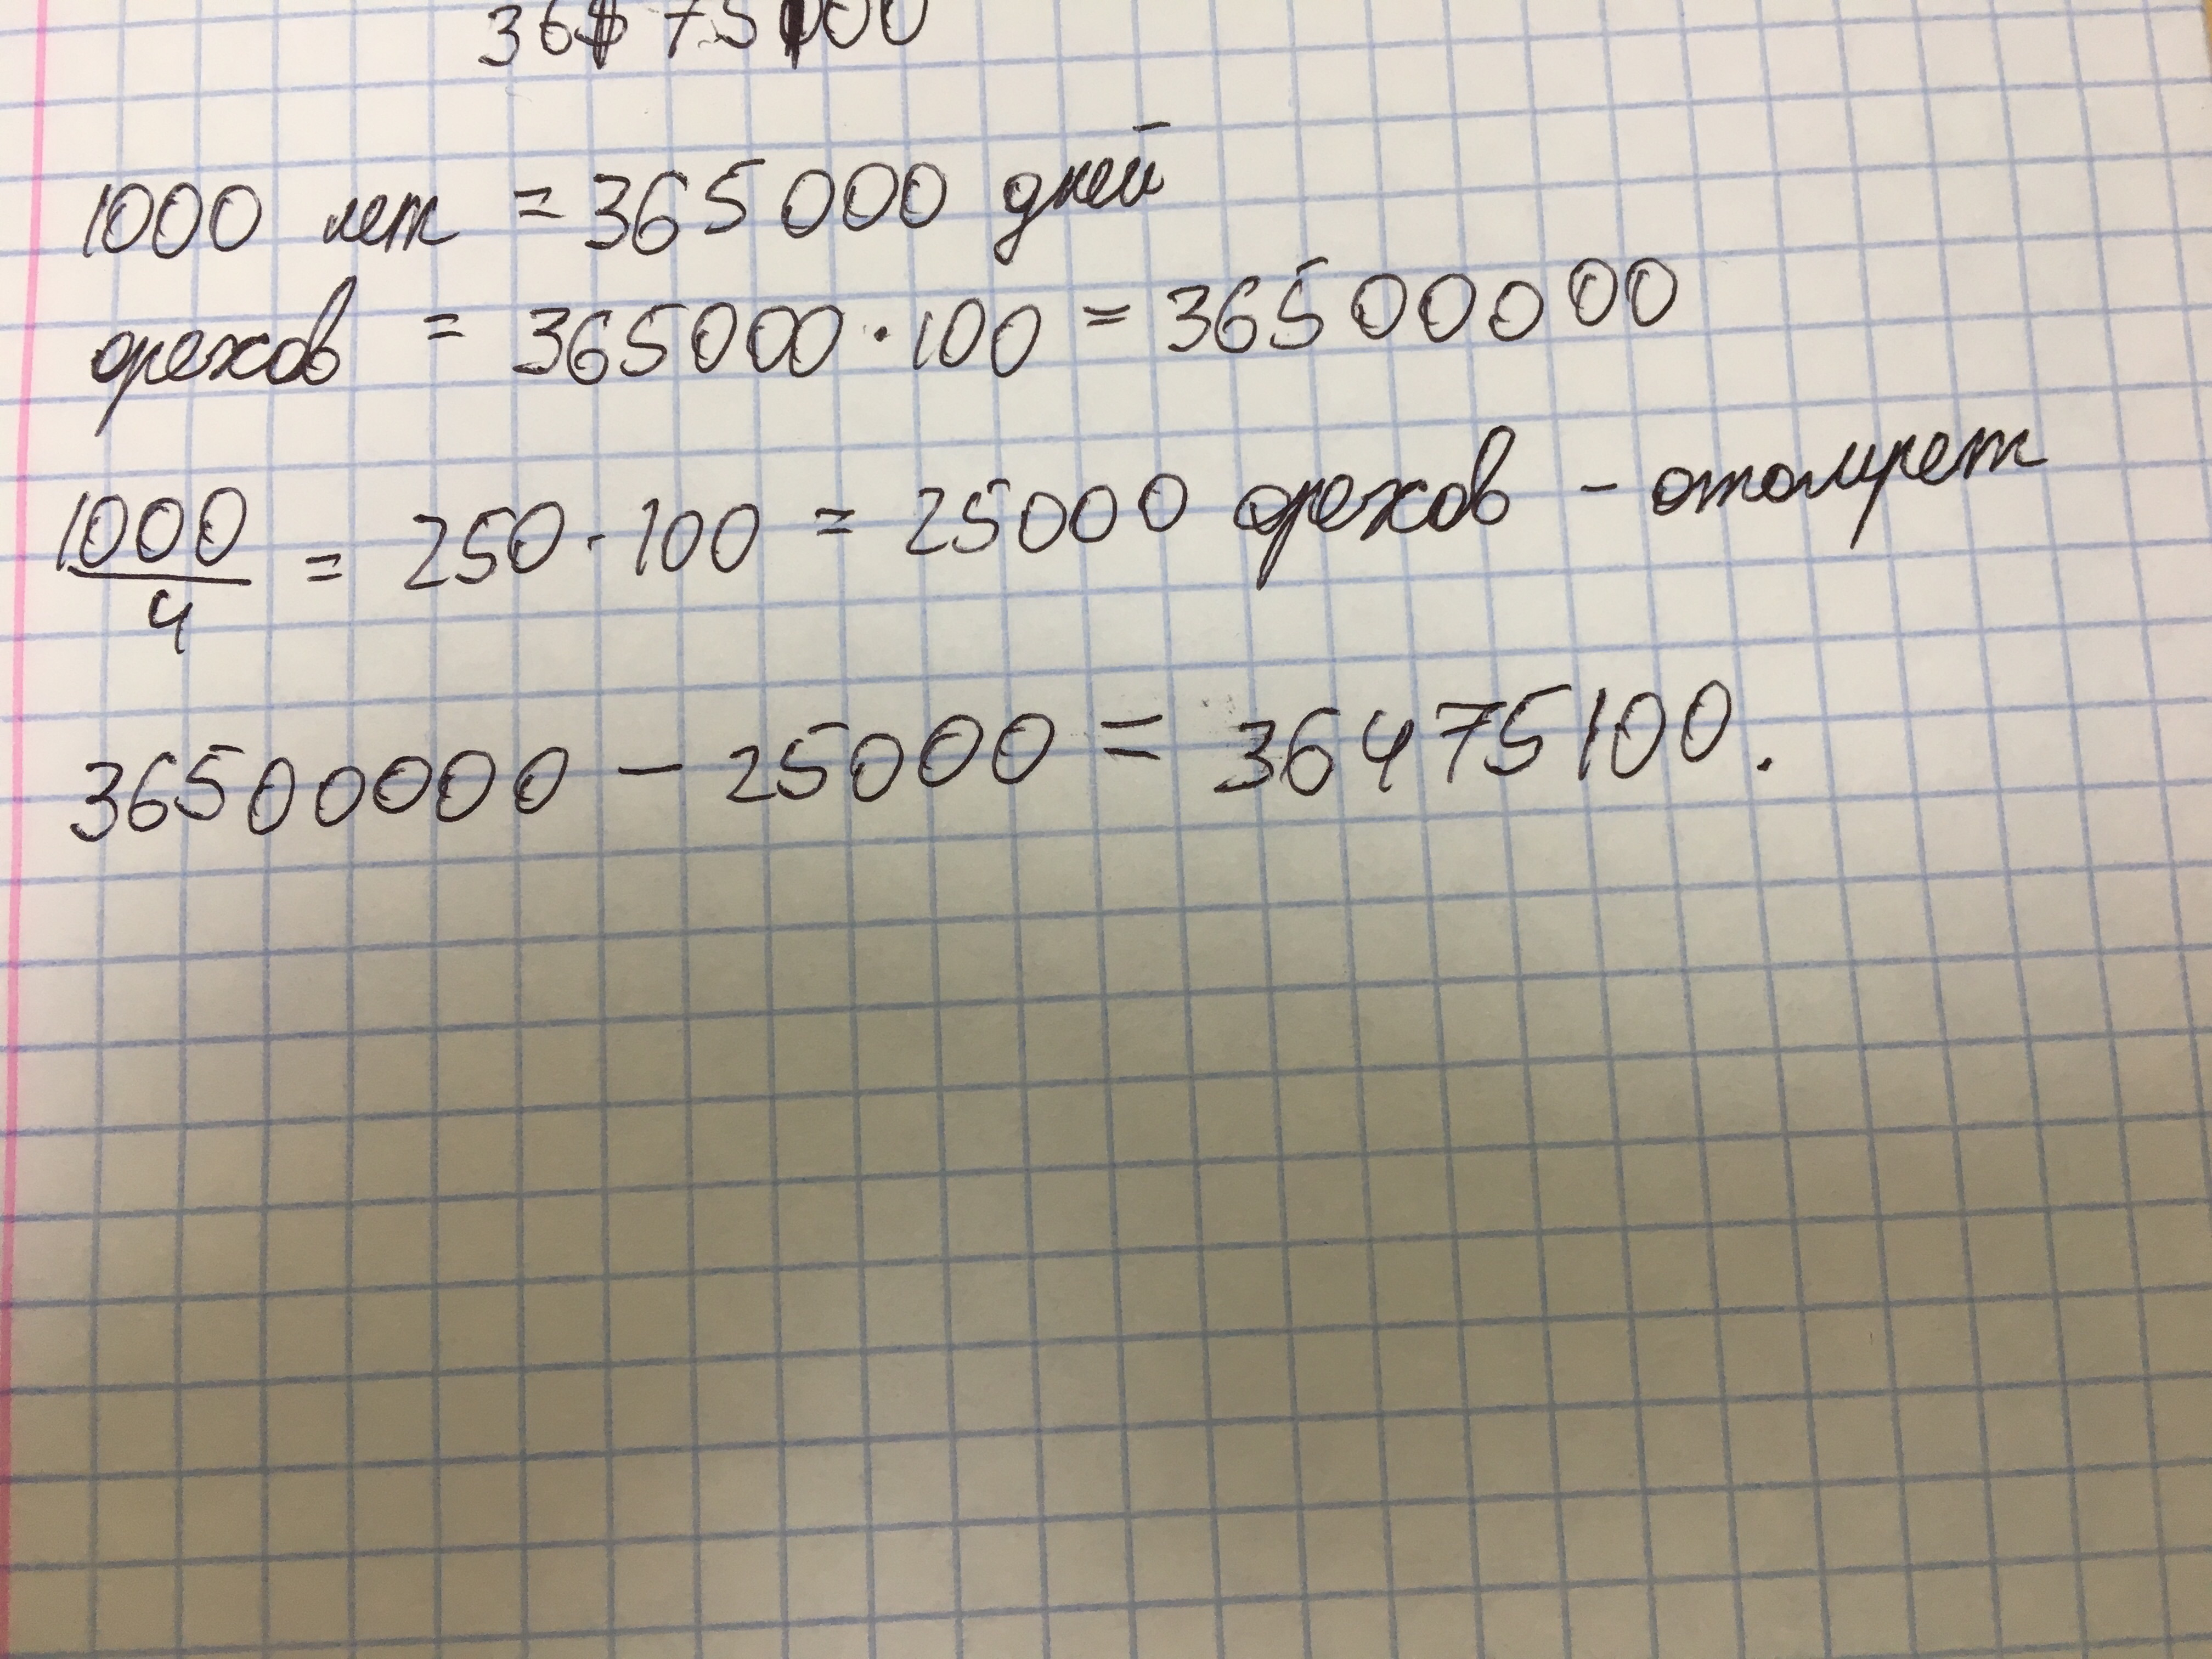 1000 лет = 365000 дней
орехов = 365000 · 100 = 36500000
1000/4 = 250 · 100 = 25000 орехов -
36500000 - 25000 = 36475100.